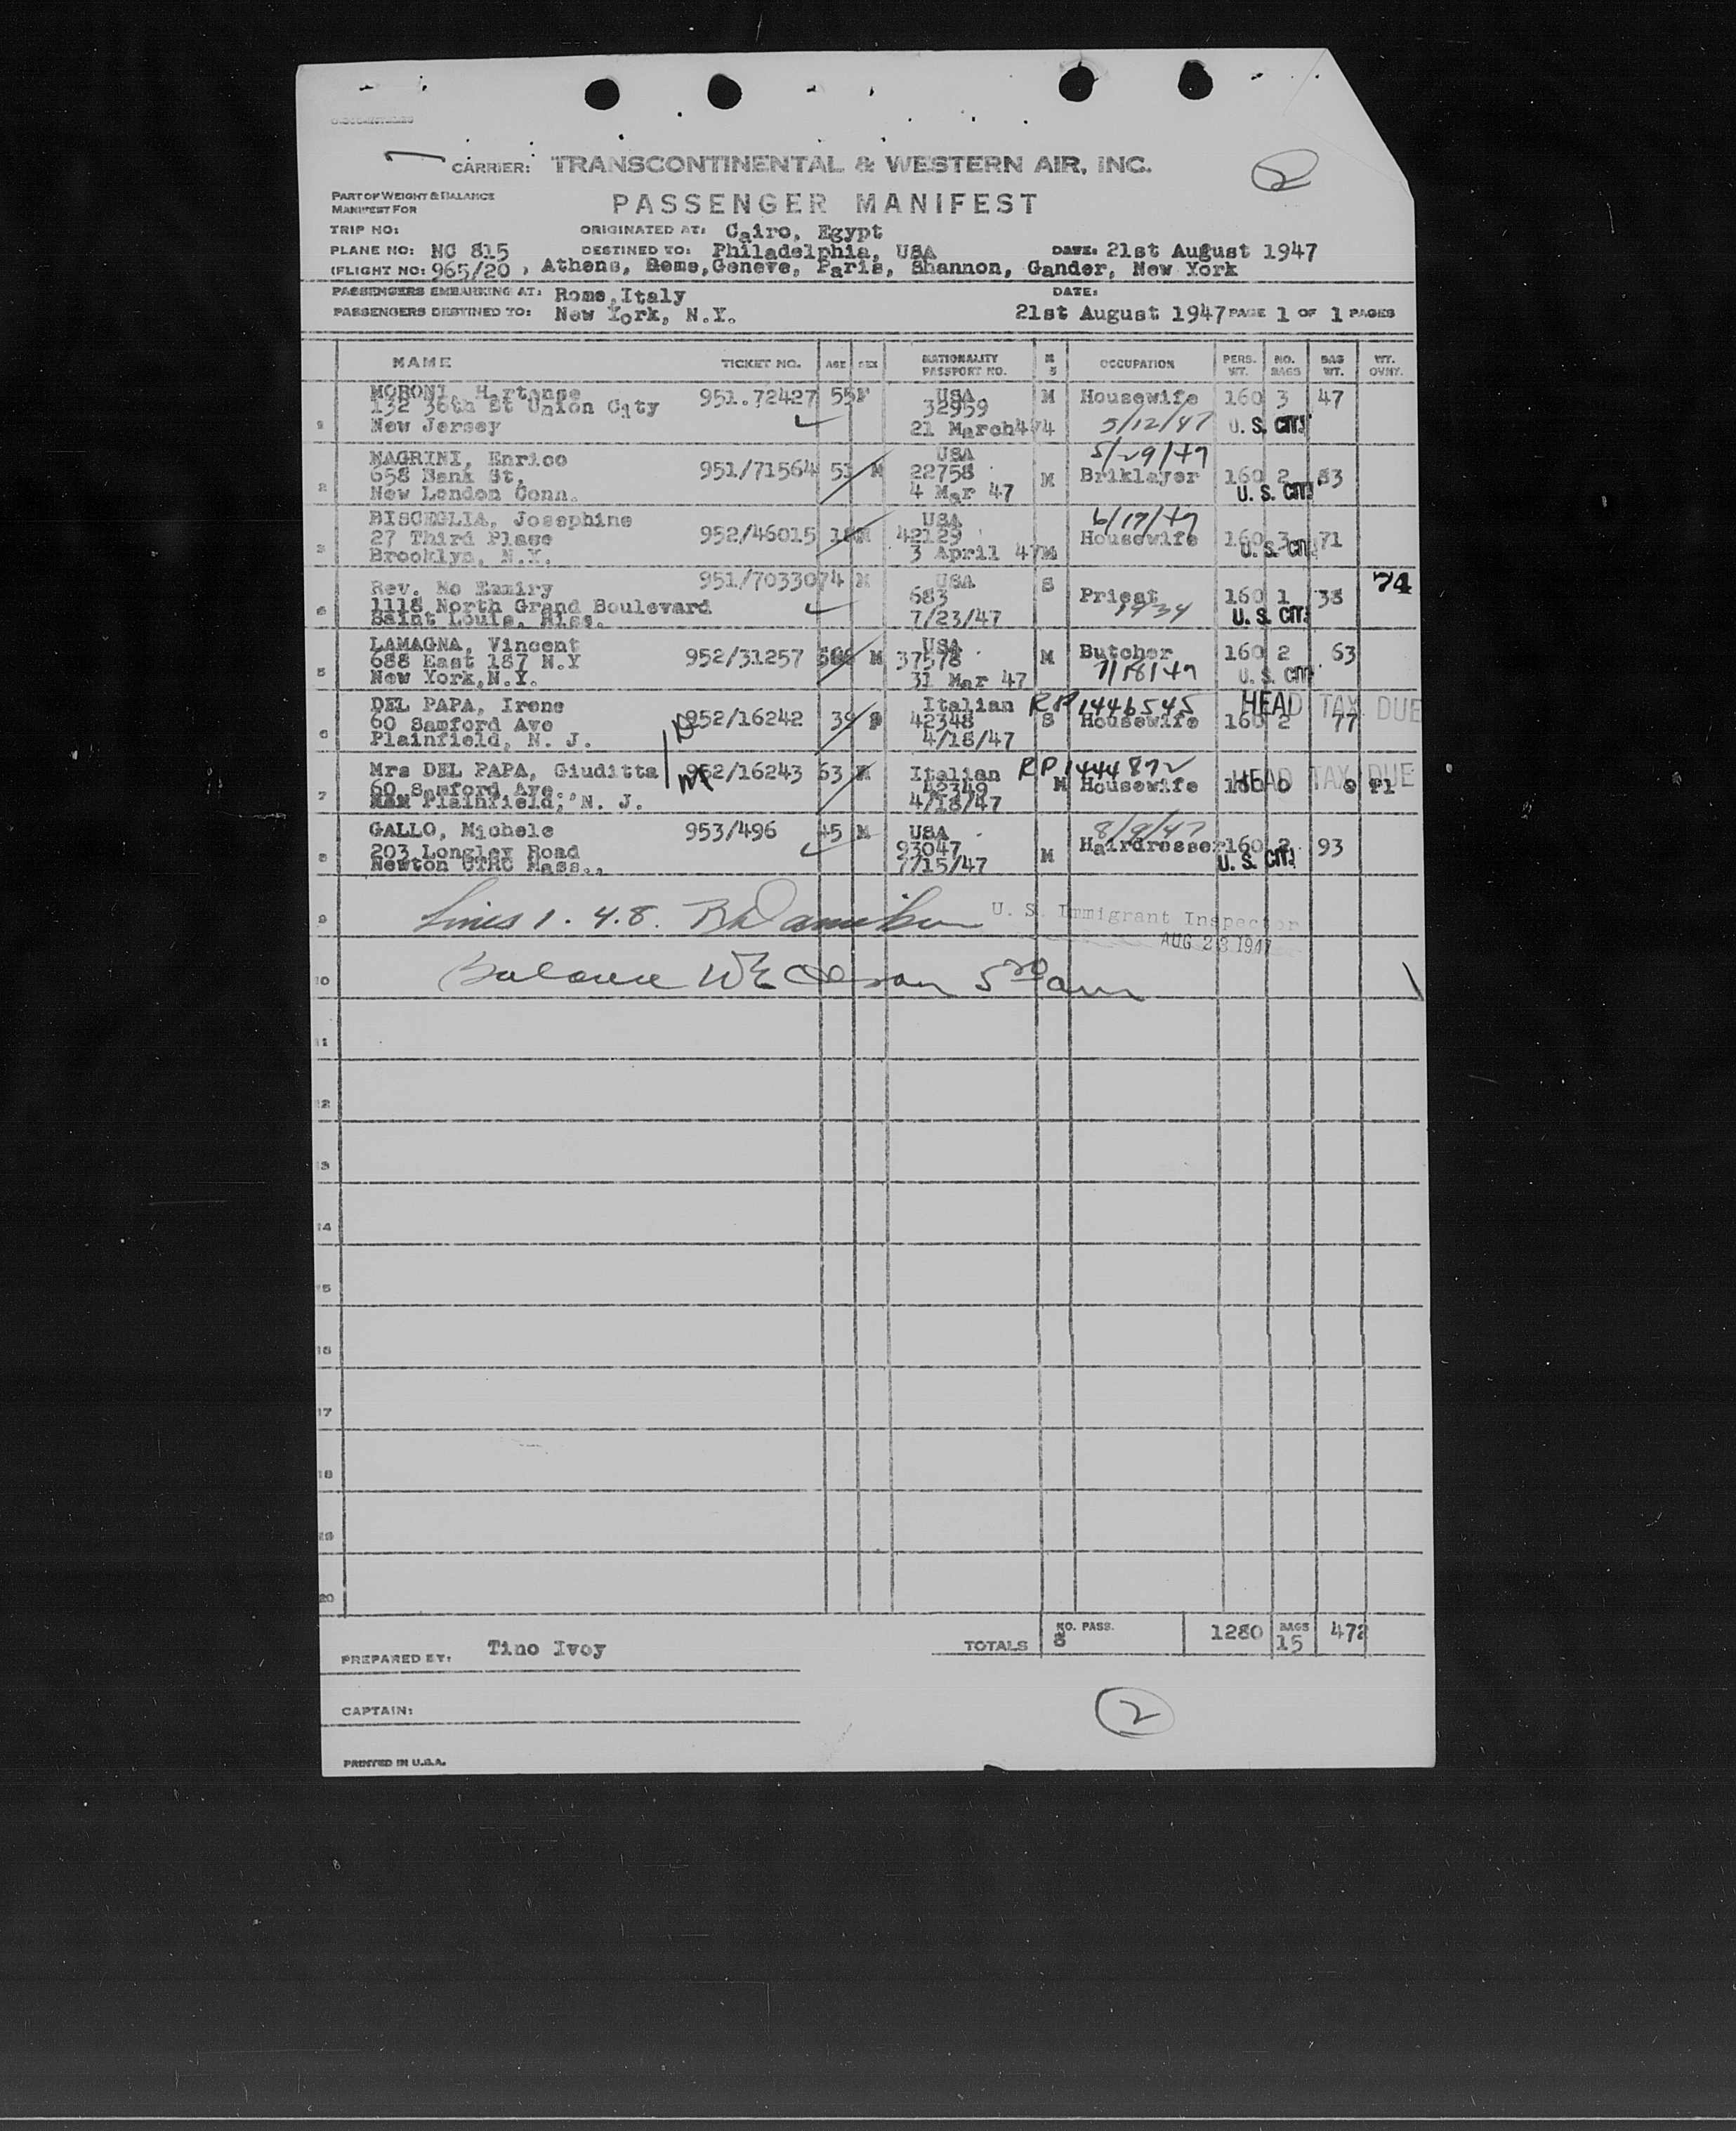 CARRIER: TRANSCONTINENTAL & WESTERN AIR, INC.
2
PART OF WEIGHT & BALANCE
MANIFEST FOR
PASSENGER MANIFEST
TRIP NO: ORIGINATED AT: Cairo, Egypt
PLANE NO: NC 815 DESTINED TO: Philadelphia, USA DATE: 21st August 1947
(FLIGHT NO: 965/20 , Athens, Rome,Geneve, Paris, Shannon, Gander, New York
PASSENGERS EMBARKING AT: Rome,Italy DATE:
PASSENGERS DESTINED TO: New York, N.Y. 21st August 1947 PAGE 1 OF 1 PAGES
NAME TICKET NO. AGE SEX NATIONALITY PASSPORT NO. M S OCCUPATION PERS. WT. NO. BAGS BAG WT. WT. OVNY.
MORONI, Hortense 951.72427 55 F USA M Housewife 160 3 47
132 36th St Union City 32959
1 New Jersey 21 March 5/12/47 U. S. CIT.
MAGRINI, Enrico USA 5/29/47
658 Bank St, 951/71564 51 M 22758 M Briklayer 160 2 83
2 New London Conn. 4 Mar 47 U. S. CIT.
BISCEGLIA, Josephine USA 6/17/47
27 Third Place 952/46015 42129 Housewife 160 3 71
3 Brooklyn, N.Y. 3 April 47 M U. S. CIT.
951/70330 74 M USA S 74
Rev. Mc 683 Priest 160 1 38
1118 North Grand Boulevard 1934
Saint Louis, Miss. 7/23/47 U. S. CIT.
LAMAGNA, Vincent USA Butcher 160 2 63
688 East 187 N.Y 952/31257 M 37578 M
5 New York,N.Y. 31 Mar 47 7/18/47 U. S. CIT.
DEL PAPA, Irene Italian RP 1446545 HEAD TAX DUE
60 Samford Ave 952/16242 39 42348 S Housewife 160 2 77
6 Plainfield, N. J. 4/18/47
Mrs DEL PAPA, Giuditta M 952/16243 63 Italian RP 1444872 HEAD TAX DUE
60 Samford Ave. 42349 M Housewife 160 0
7 Plainfield, N. J. 4/18/47
GALLO, Michele 953/496 45 M USA 8/9/47
203 Longley Road 93047 M Hairdresser 160 2 93
8 Newton CTRC Mass., 7/15/47 U. S. CIT.
9 Lines 1. 4. 8. U. S. Immigrant Inspector
AUG 23 1947
10 Balance
11
12
13
14
15
16
17
18
19
20
TOTALS NO. PASS. 8 1280 BAGS 15 472
PREPARED BY: Tino Ivoy
CAPTAIN:
2
PRINTED IN U.S.A.